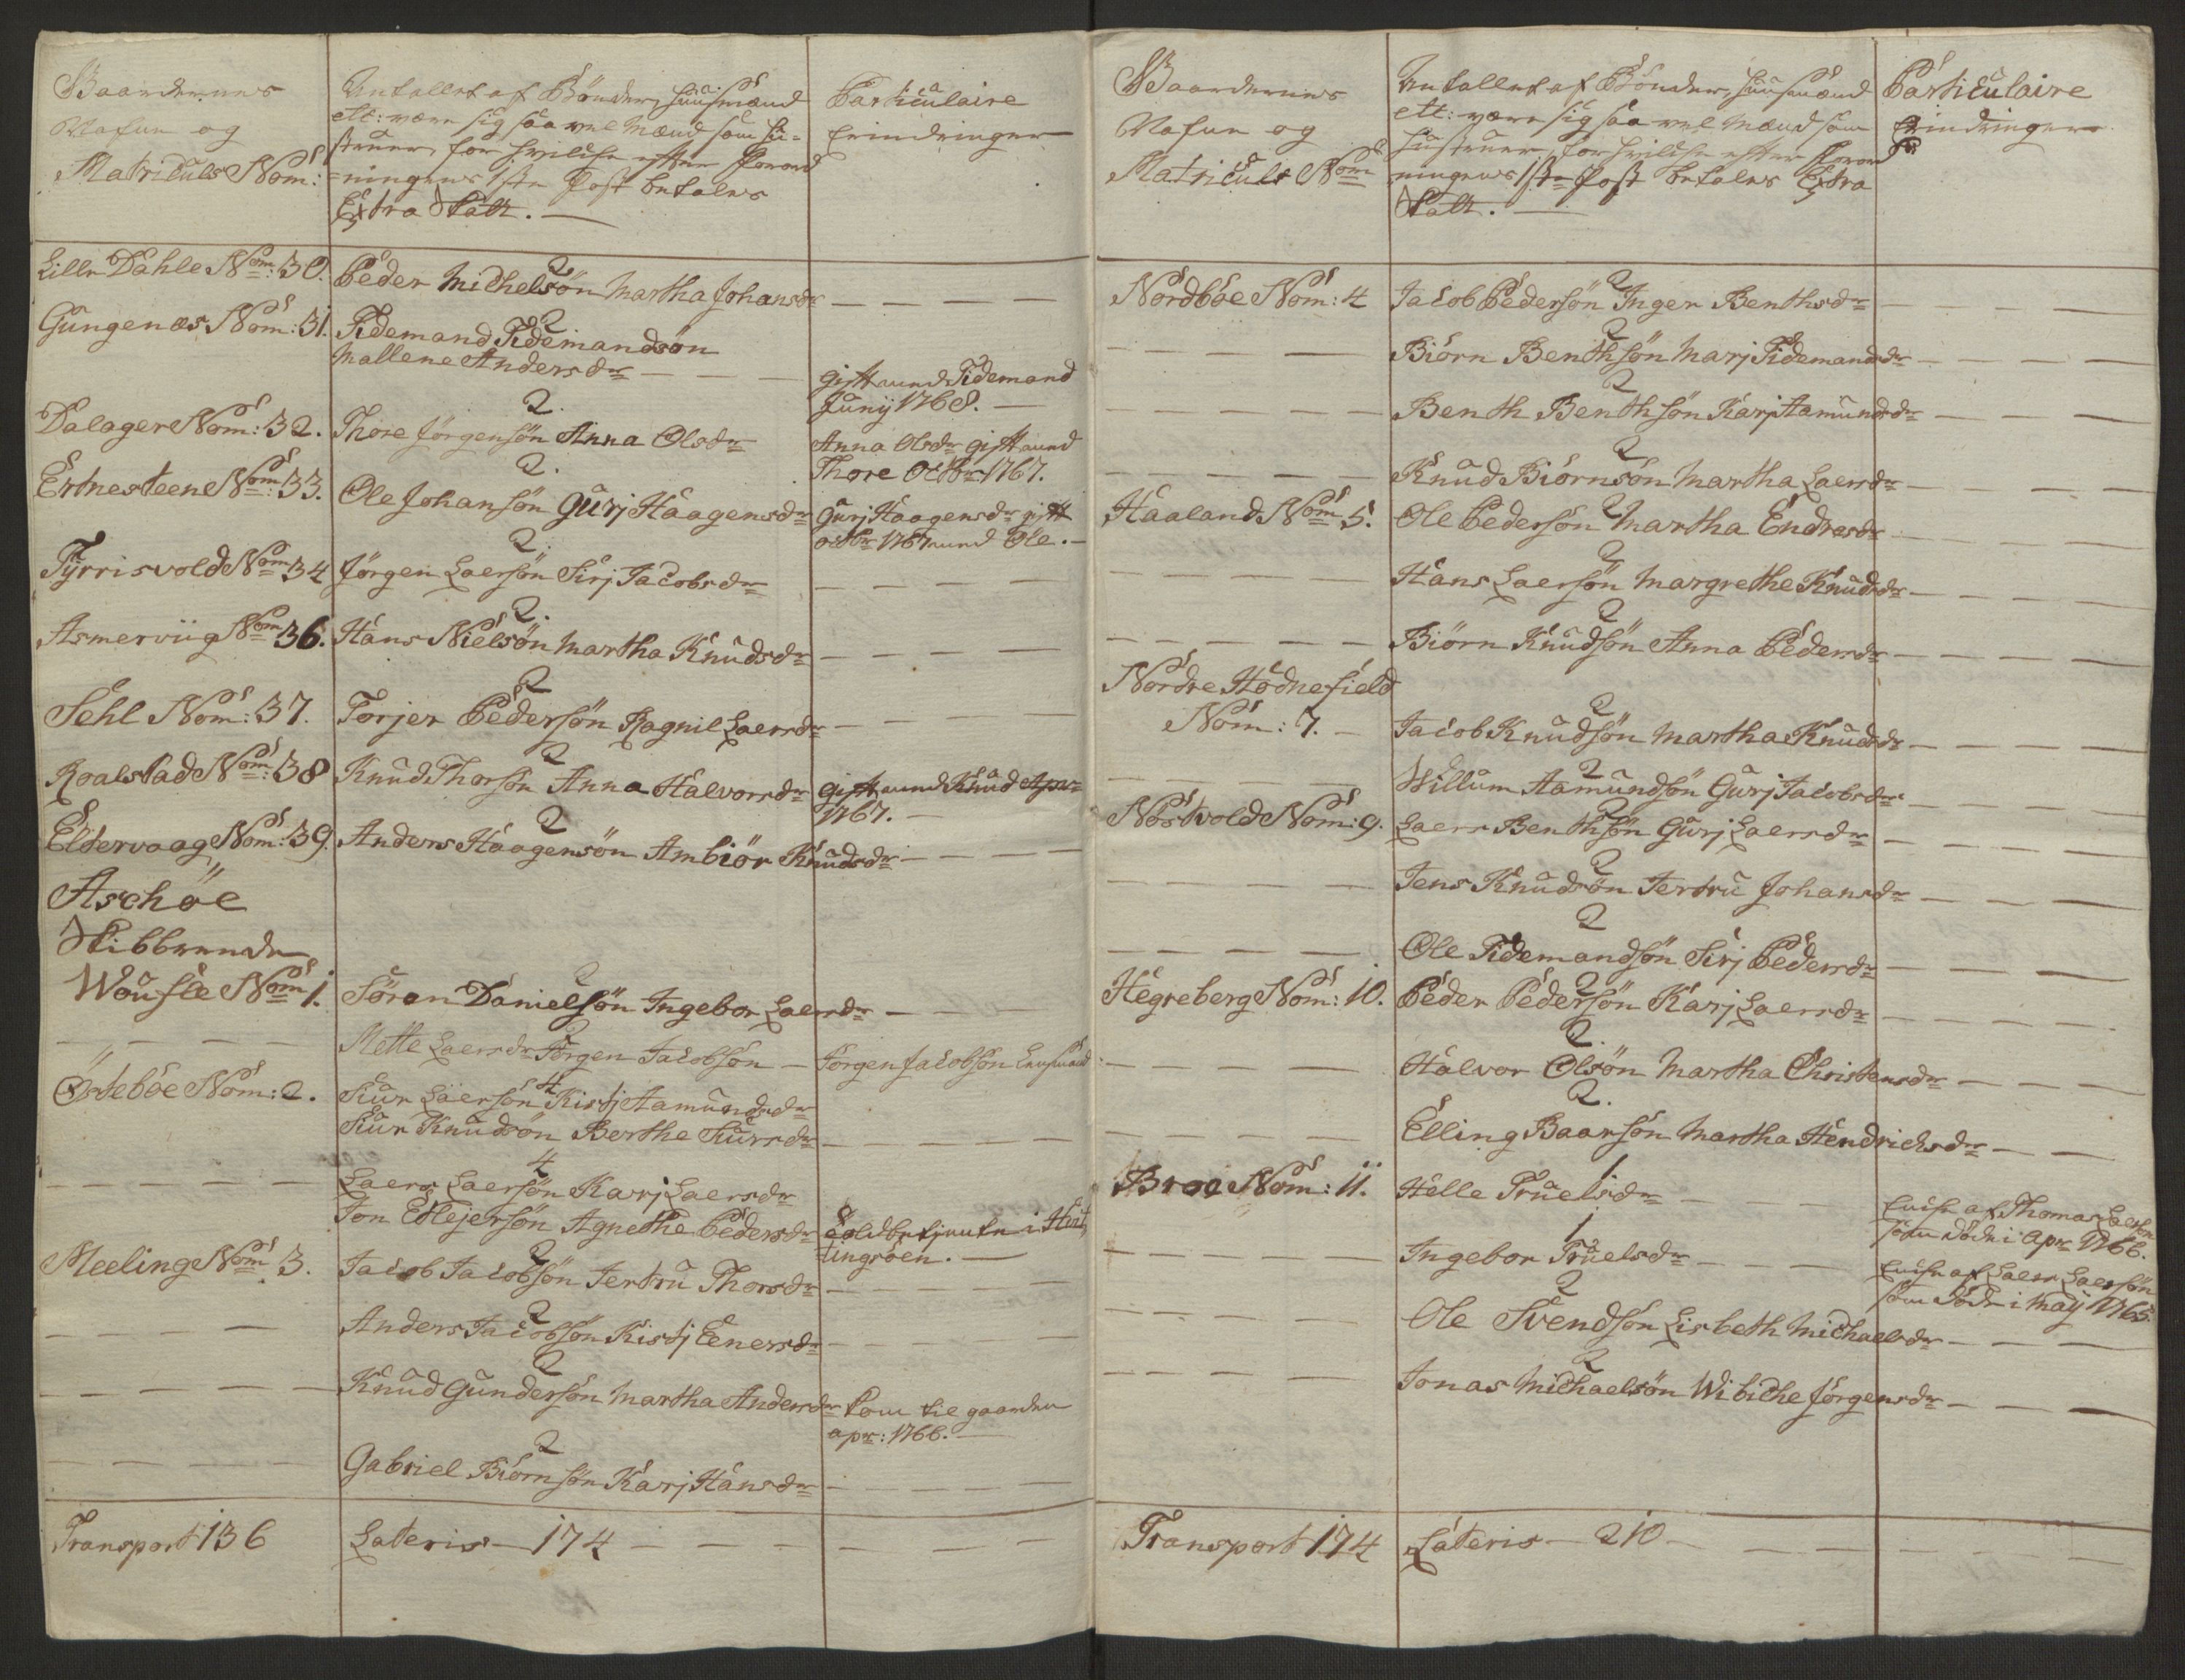 Gaardernes
Nafne og
Matriculs Nom:
Antallet af Bönder, Huusmænd
ett: være sig saa vel Mænd som Hu=
struer, for hvilche efter Forord
=ningens 1ste Post betales
Extra Skatt. —
Particulaire
Erindringer
Lille Dahle Nom: 30.
2
Peder Michelsön Martha Johansdr — — — —
Gungenæs Nom: 31.
2
Tidemand Tidemandsön
Mallene Andersdr — — —
gift med Tidemand
Junij 1768. —
Dalager Nom: 32.
2.
Thore Jörgensön Anna Olsdr
Anna Olsdr gift med
Thore Octbr 1767.
Ertnesteene Nom: 33.
2.
Ole Johansön Gurj Haagensdr
Gurj Haagensdr gift
octbr 1767 med Ole. —
Tyrrisvold Nom 34
2.
Jörgen Laersön Sirj Jacobsdr — — — —
Asmerviig Nom 36.
2.
Hans Nielsön Martha Knudsdr — — — —
Sehl Nom: 37.
2
Torjer Pedersön Ragnil Laersdr — — — —
Roalstad Nom: 38
2
Knud Thorsön Anna Halvorsdr
gift med Knud Apr
1767. —
Eltervaag Nom: 39.
2
Anders Haagensön Ambiör Knudsdr — — — —
Aschöe
Skibbrende
Wousle Nom 1.
2
Sören Danielsön Ingebor Laersdr — — —
— — — —
2
Mette Laersdr Jörgen Jacobsön —
Jörgen Jacobsön Huusmand
Östeböe Nom: 2.
4
Siur Laersön Kistj Aamundsdr
Siur Knudsön Berthe Siursdr — — — —
— — — —
4
Laers Laersön Karj Laersdr
Jon Edlejersön Agnethe Pedersdr
Toldbetjente i Hut,
tingsöen. —
Meeling Nom 3.
2
Jacob Jacobsön Jertru Thorsdr — — — —
— — — —
2
Anders Jacobsön Kistj Eenersdr — — — —
— — — —
2
Knud Gundersön Martha Andersdr
kom til gaarden
apr: 1766. —
— — — —
2
Gabriel Biörnsön Karj Hansdr — — — —
Transport 136
Lateris — 174 — — — — — —
Gaardernes
Nafne og
Matriculs Nom
Antallet af Bönder, Huusmænd
ett: være sig saa vel Mænd som
Hustruer, for hvilche efter Forord
ningens 1ste Post betales Extra
Skatt. —
Particulaire
Erindringer
Nordböe Nom: 4
2
Jacob Pedersön Inger Benthsdr — — — —
— — — —
2
Biörn Benthsön Marj Tidemandsdr — — — —
— — — —
2
Benth Benthsön Karj Aamundsdr — — — —
— — — —
2
Knud Biörnsön Martha Laersdr — — — —
Haaland Nom 5.
2
Ole Pedersön Martha Endresdr — — — —
— — — —
2
Hans Laersön Margrethe Knudsdr — — — —
— — — —
2
Biörn Knudsön Anna Pedersdr — — — —
Nordre Hödnefield
Nom: 7. —
2
Jacob Knudsön Martha Knudsdr — — — —
— — — —
2
Willum Aamundsön Gurj Jacobsdr — — — —
Nostvold Nom: 9.
2
Laers Benthsön Gurj Laersdr — — — —
— — — —
2
Jens Knudsön Jertru Johansdr — — — —
— — — —
2
Ole Tidemandsön Sirj Pedersdr — — — —
Hegreberg Nom: 10.
2
Peder Pedersön Karj Laersdr — — — —
— — — —
2.
Halvor Olsön Martha Christensdr — — — —
— — — —
2.
Elling Baarsön Martha Hendrichsdr — — —
Broe Nom: 11.
1
Helle Truelsdr — — —
Enke af Thomas Laersön
som döde i Apr 1766.
— — — —
1
Ingebor Truelsdr — — —
Enke af Laers Laersön
som döde i Maÿ 1765.
— — — —
2
Ole Svendsön Lisbeth Michaelsdr — — — —
— — — —
2
Jonas Michaelsön Wibiche Jörgensdr — — —
Transport 174
Lateris — 210 — — — — — —